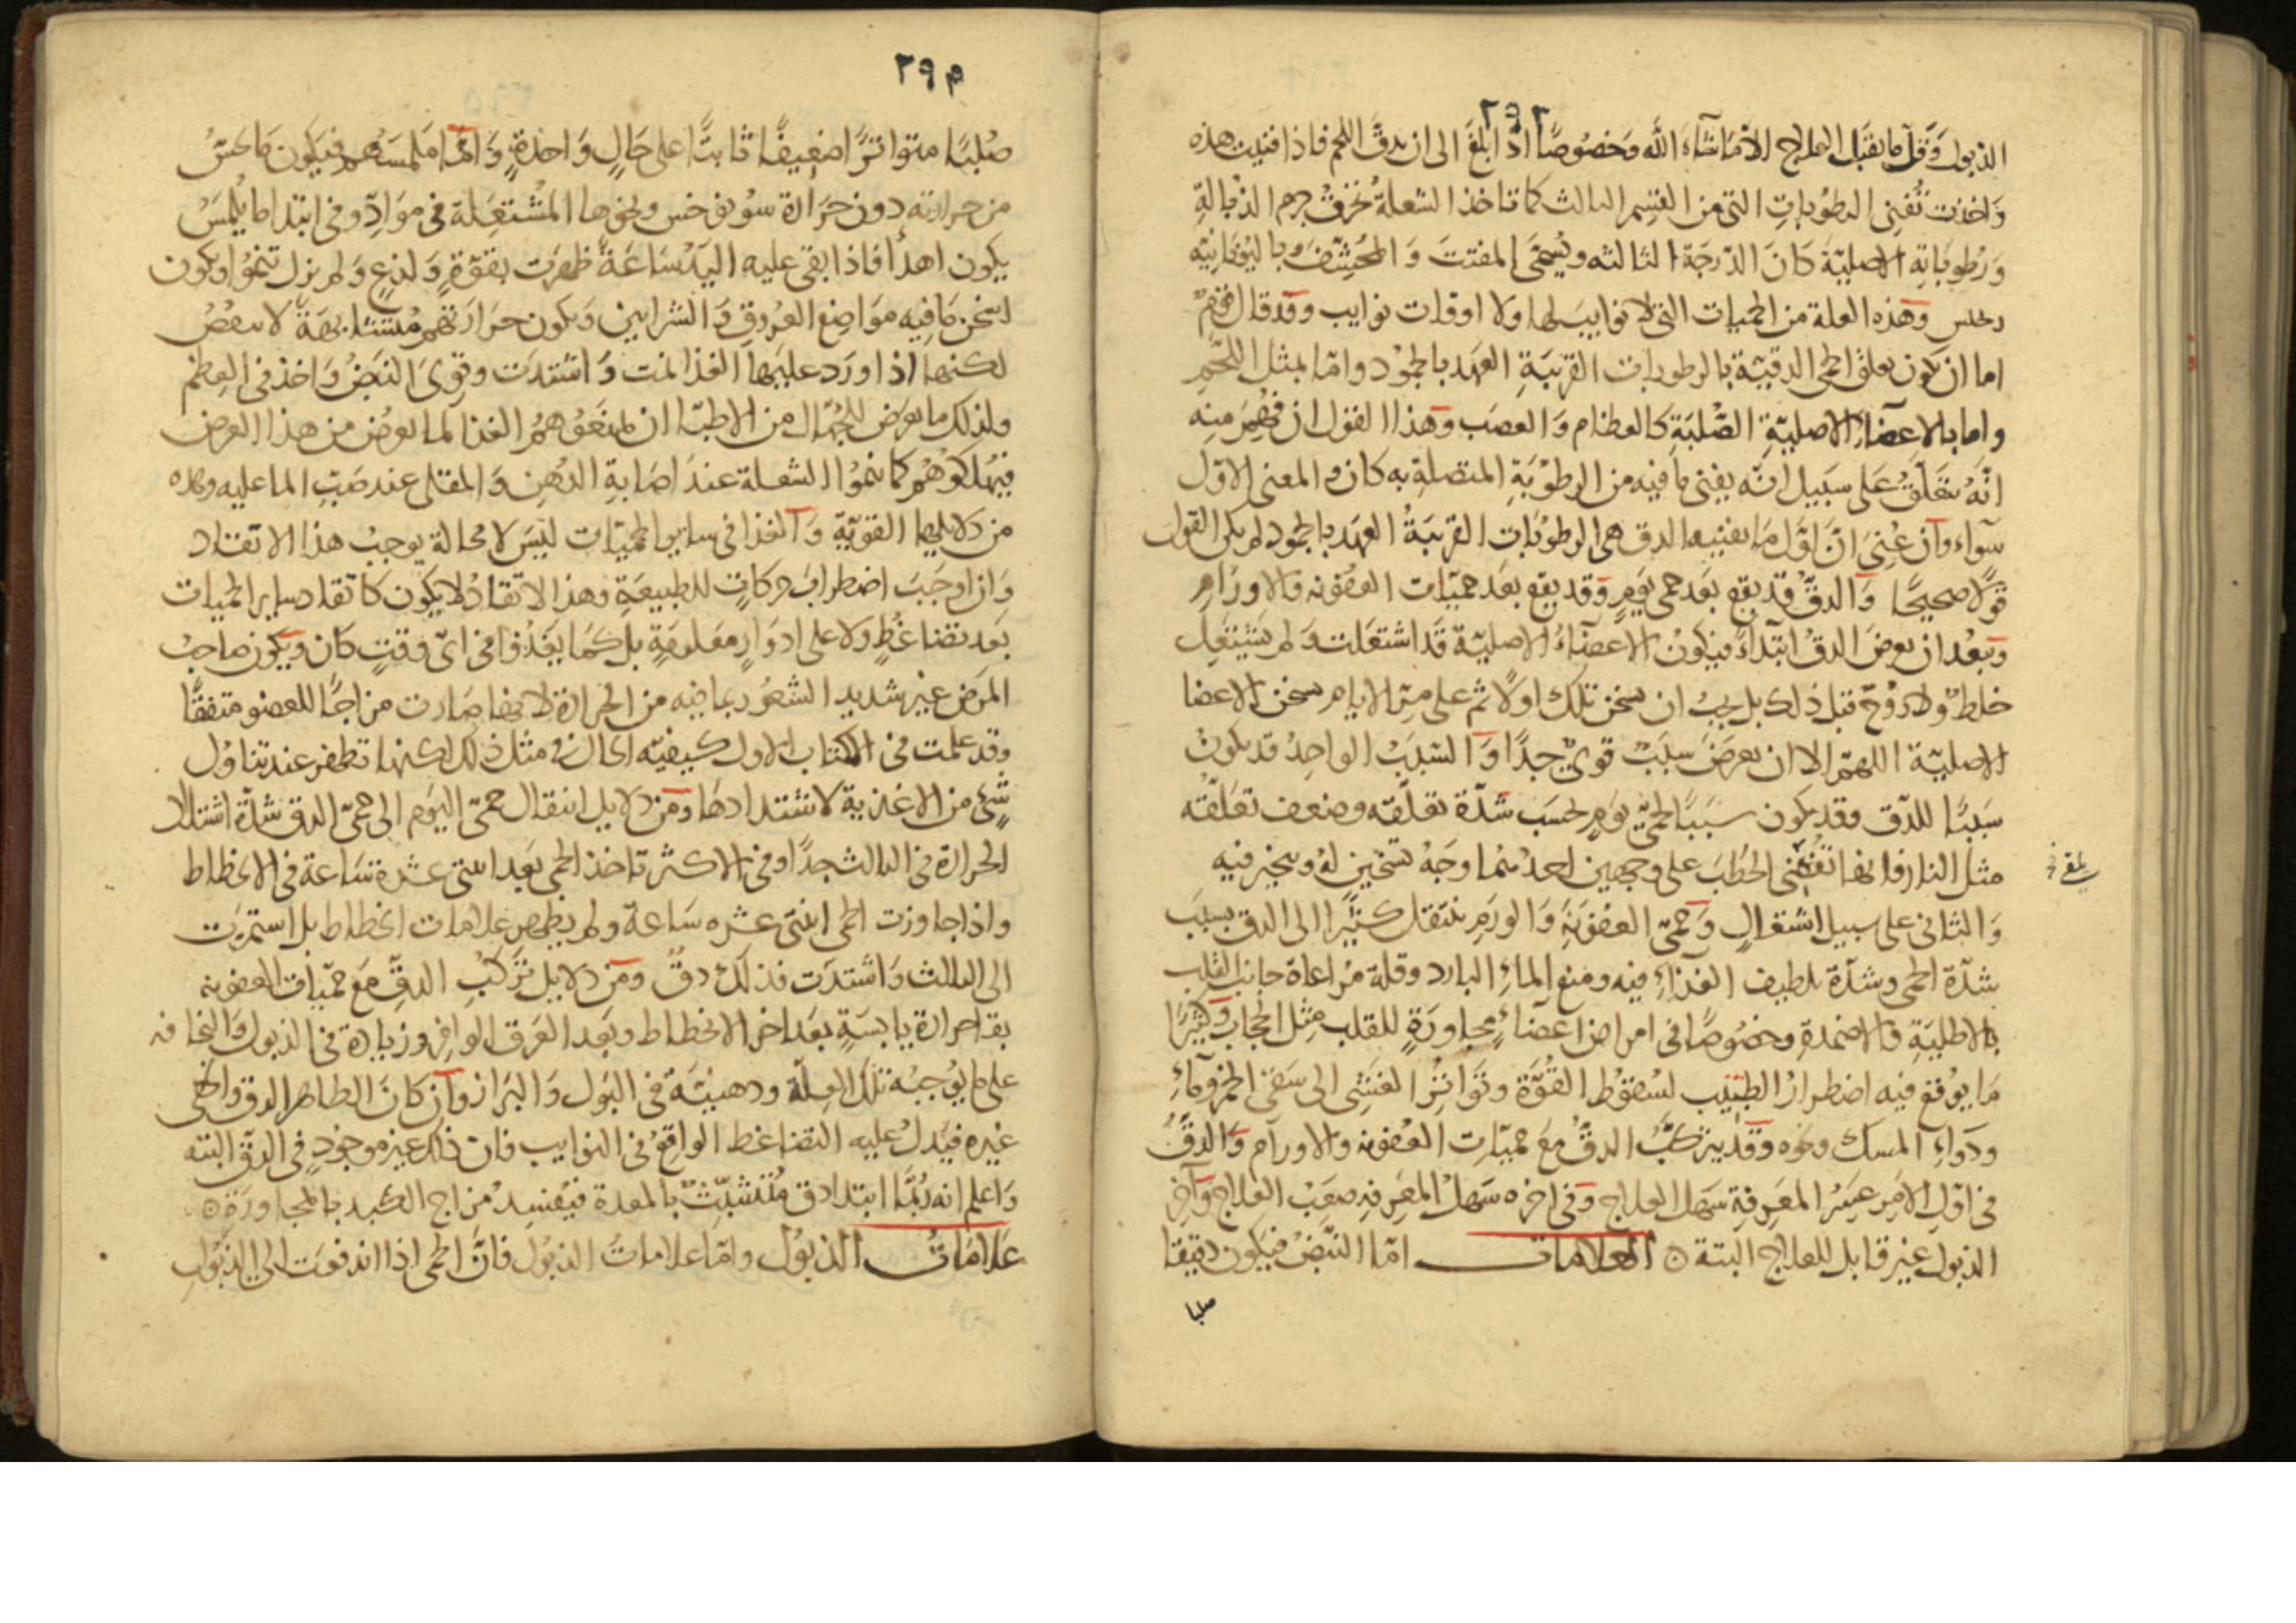 ٢٩٢
الذبول وقل ما يقبل العلاج الا ما شاء الله وخصوصا اذا بلغ الى ان يدق اللحم فاذا فنيت هذه
واخذت تفنى الرطوبات التى من القسم الثالث كما تاخذ الشعلة تحرق جرم الذبالة
ورطوباته الاصلية كان الدرجة الثالثة ويسمى المفتت والمحشف وباليونانية
وهذه العلة من الحميات التى لا نوايب لها ولا اوقات نوايب وقد قال قوم
اما ان يكون تعلق الحمى الدقية بالرطوبات القريبة العهد بالجمود واما بمثل اللحم
واما بالاعضاء الاصلية الصلبة كالعظام والعصب وهذا القول ان فهم منه
انه يتعلق على سبيل انه يفنى ما فيه من الرطوبة المتصلة به كان والمعنى الاول
سواء وان عنى ان اول ما يفنيه الدق هى الرطوبات القريبة العهد بالجمود لم يكن القول
قولا صحيحا والدق قد يقع بعد حمى يوم وقد يقع بعد حميات العفونه والاورام
ويبعد ان يعرض الدق ابتداء فيكون الاعضاء الاصلية قد اشتعلت ولم يشتعل
خلط ولا روح قبل ذلك بل يجب ان يسخن تلك اولا ثم على مر الايام يسخن الاعضا
الاصلية اللهم الا ان يعرض سبب قوى جدا والسبب الواحد قد يكون
سببا للدق وقد يكون سببا لحمى يوم لحسب شدة تعلقه وضعف تعلقه
مثل النار فانها تفنى الحطب على وجهين احدهما وجه تسخين له وتبخير فيه
والثانى على سبيل اشتعال وحمى العفونة والورم ينتقل كثيرا الى الدق بسبب
شدة الحمى وشدة تلطيف الغذاء فيه ومنع الماء البارد وقلة مراعاة جانب القلب
بالاطلية والاضمدة وخصوصا فى امراض اعضاء مجاورة للقلب مثل الحجاب وكثيرا
ما يوقع فيه اضطرار الطبيب لسقوط القوة وتواتر الغشى الى سقى الخمر وماء
ودواء المسك ونحوه وقد يتركب الدق مع حميات العفونه والاورام والدق
فى اول الامر عسر المعرفة سهل العلاج وفى اخره سهل المعرفه صعب العلاج واخر
الذبول غير قابل للعلاج البتة ۞ العلامات اما النبض فيكون دقيقا
صلبا
٢٩٣
صلبا متواترا ضعيفا ثابتا على حال واحدة واما ملمسهم فيكون ما يحس
من حرارته دون حرارة سونوخس ونحوها المشتعلة فى مواد وفى ابتدا ما يلمس
يكون اهدأ فاذا بقى عليه اليد ساعة ظهرت بقوة ولذع ولم يزل تنمو ويكون
اسخن ما فيه مواضع العروق والشرايين ويكون حرارتهم متشابهة لا ينقص
لكنها اذا ورد عليها الغذا نمت واشتدت وقوى النبض واخذ فى العظم
ولذلك ما يعرض للجهال من الاطبا ان يمنعوهم الغذا لما يعرض من هذا العرض
فيهلكوهم كما ينموا الشعلة عند اصابة الدهن والمقلى عند صب الما عليه وهذه
من دلايلها القوية والغذا فى ساير الحميات ليس لا محالة يوجب هذا الاتقاد
وان اوجب اضطراب حركات للطبيعة وهذا الاتقاد لا يكون كاتقاد ساير الحميات
بعد تضاغط ولا على ادوار معلومة بل كما يغذوا فى اى وقت كان ويكون صاحب
المرض غير شديد الشعور بما فيه من الحرارة لانها صارت مزاجا للعضو متفقا
وقد علمت فى الكتاب الاول كيفيه الحال فى مثل ذلك لكنها تظهر عند تناول
شئ من الاغذية لاشتدادها ومن دلايل انتقال حمى اليوم الى حمى الدق شدة اشتداد
الحرارة فى الثالث جدا وفى الاكثر تاخذ الحمى بعد اثنتى عشرة ساعة فى الانحطاط
واذا جاوزت الحمى اثنتى عشره ساعة ولم يظهر علامات انحطاط بل استمرت
الى الثالث واشتدت فذلك دق ومن دلايل تركب الدق مع حميات العفونه
بقا حرارة يابسة بعد اخر الانحطاط وبعد العرق الوافر وزيادة فى الذبول والنحافه
على ما يوجبه تلك العلة ودهنية فى البول والبراز وان كان الظاهر الدق والخفى
غيره فيدل عليه التضاغط الواقع فى النوايب فان ذلك غير موجود فى الدق البته
واعلم انه ربما ابتدا دق متشبث بالمعدة فيفسد مزاج الكبد بالمجاورة ۞
علامات الذبول واما علامات الذبول فان الحمى اذا اندفعت الى الذبول